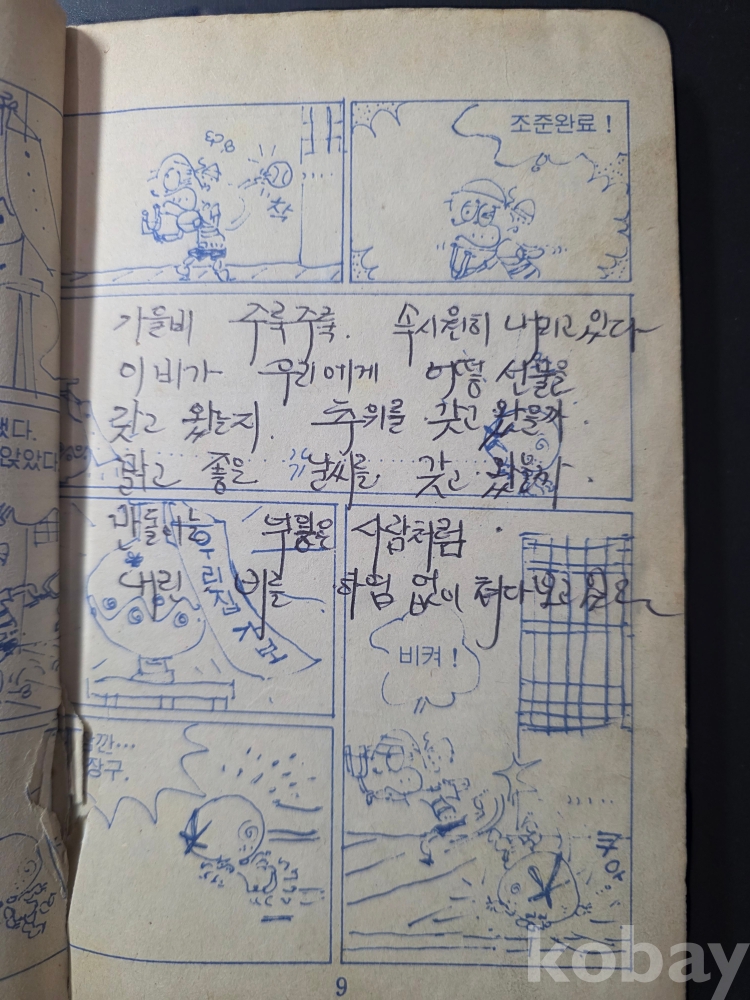 조준완료!
착
가을비 주룩주룩. 속시원히 내리고 있다
이 비가 우리에게 어떻 선물을
갖고 왔는지. 추위를 갖고 왔을까
맑고 좋은 날씨를 갖고 왔을까.
사람처럼
내린 비를 하염 없이 쳐다 보고
했다.
앉았다
비켜!
깐…
장구.
쿠와
9
kobay